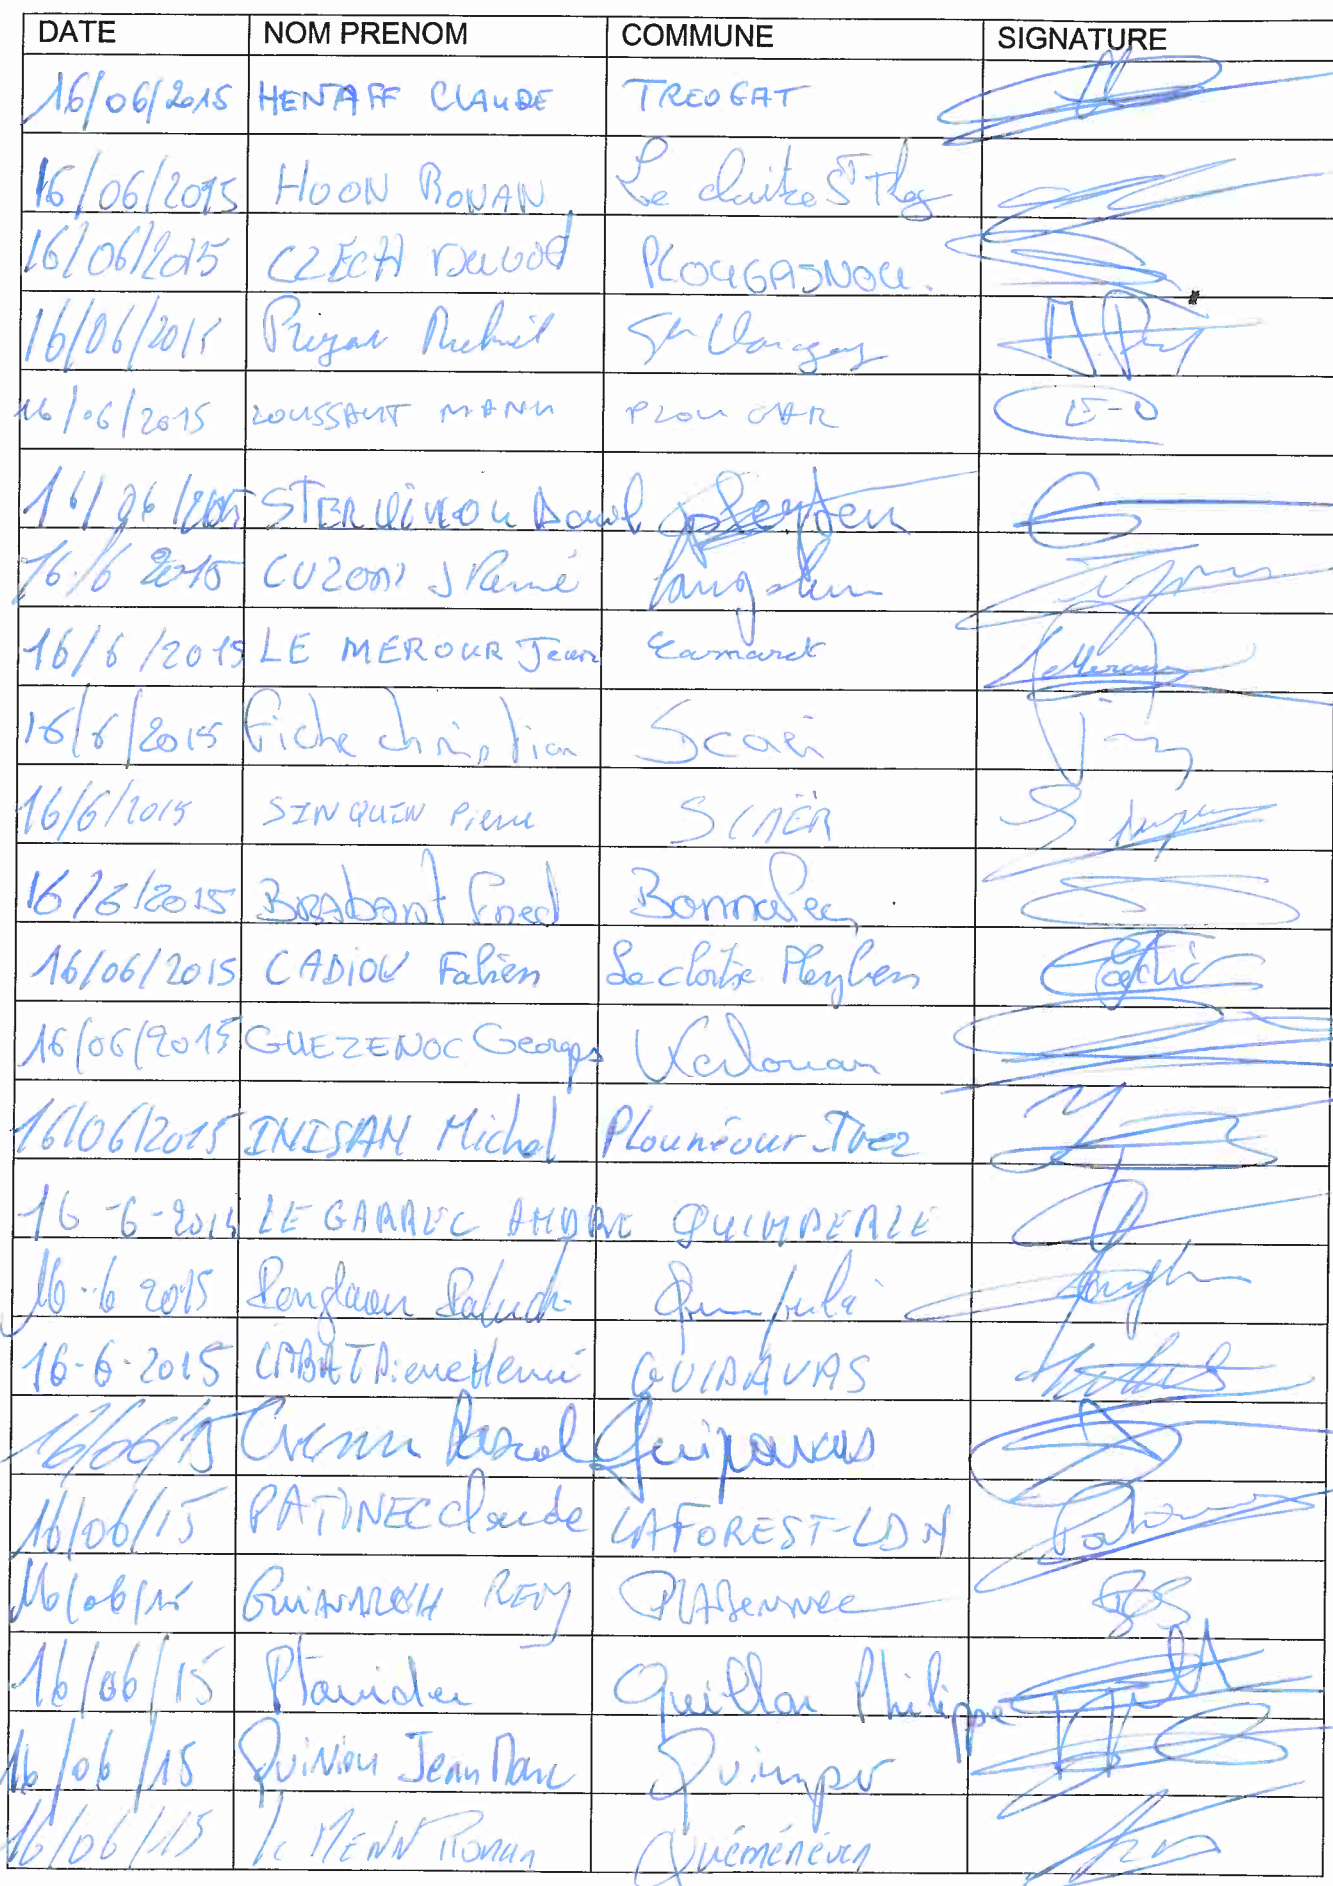 DATE NOM PRENOM COMMUNE SIGNATURE
16/06/2015 HENAFF CLAUDE TREOGAT
16/06/2015 HOON RONAN Le cloitre St Theg
16/06/2015 CZECH David PLOUGASNOU.
16/06/2015 St
16/06/2015 LOUSSAUT MANU PLOU
16/06/2015 STERVINOU
16/6 2015 CUZON J René
16/6/2015 LE MEROUR Jean Camaret
16/6/2015 Fiche Christian Scaër
16/6/2015 SINQUIN Pierre SCAËR
16/6/2015 BRABANT Fred Bannalec
16/06/2015 CADIOU Fabien Le cloitre Pleyben
16/06/2015 GUEZENOC Georges Kerlouan
16/06/2015 INISAN Michel Plounéour-Trez
16-6-2015 LE GARREC ANDRE QUIMPERLE
16-6 2015 Quimperlé
16-6-2015 LABAT Pierre Henri GUIPAVAS
16/06/15 Pascal Guipavas
16/06/15 PATINEC Claude LAFOREST-LDN
16/06/15 REMY PLABennec
16/06/15 Plouider Quillar Philippe
16/06/15 Quiniou Jean Marc Quimper
16/06/15 Le MENN Ronan Quéménéven